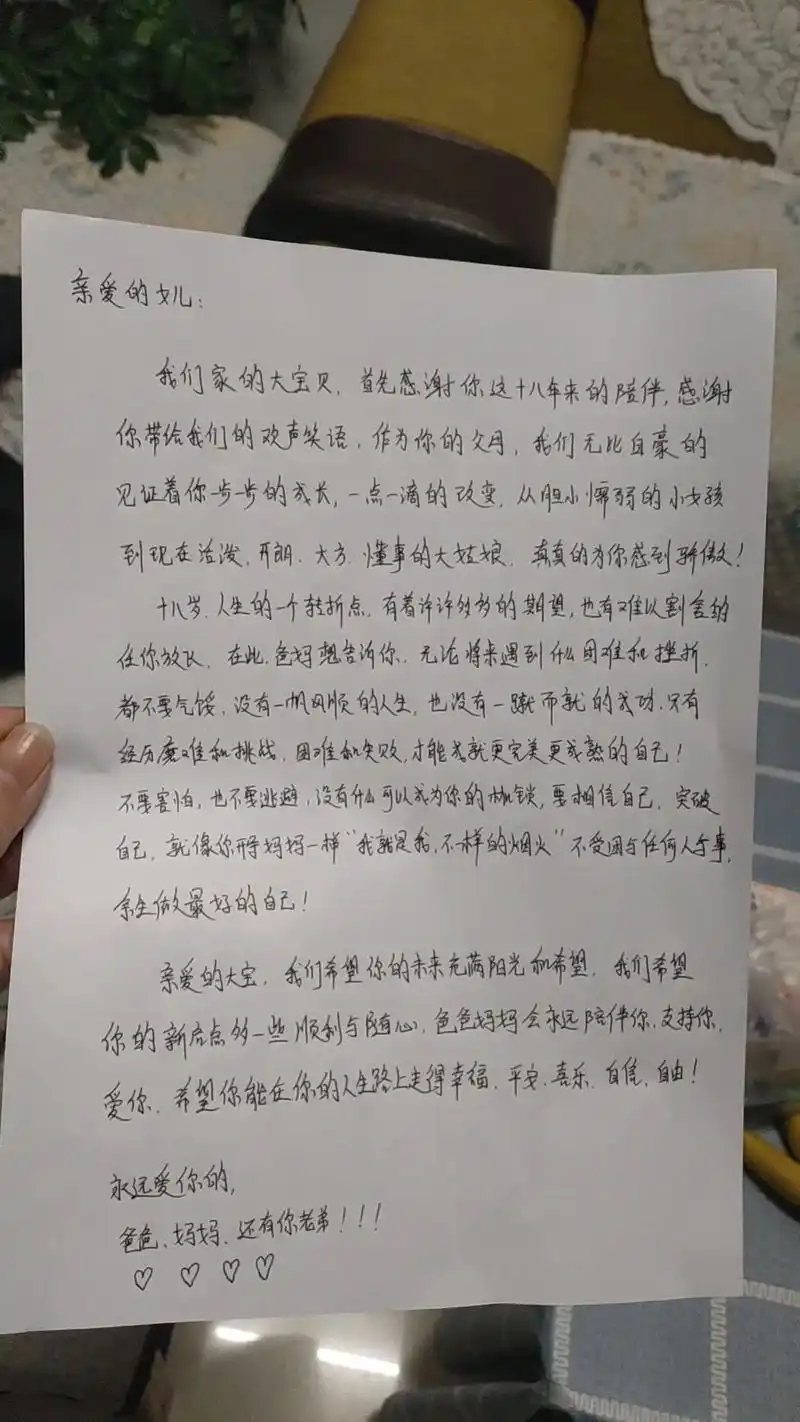 亲爱的女儿:
我们家的大宝贝,首先感谢你这十八年来的陪伴,感谢
你带给我们的欢声笑语,作为你的父母,我们无比自豪的
见证着你一步一步的成长,一点一滴的改变,从胆小懦弱的小女孩
到现在活泼、开朗、大方、懂事的大姑娘,真真的为你感到骄傲!
十八岁,人生的一个转折点,有着许许多多的期望,也有难以割舍的
任你放飞,在此,爸妈想告诉你,无论将来遇到什么困难和挫折,
都不要气馁,没有一帆风顺的人生,也没有一蹴而就的成功,只有
经历磨难和挑战,困难和失败,才能成就更完美更成熟的自己!
不要害怕,也不要逃避,没有什么可以成为你的枷锁,要相信自己,突破
自己,就像你形容妈妈一样“我就是我,不一样的烟火”不受困与任何人与事,
余生做最好的自己!
亲爱的大宝,我们希望你的未来充满阳光和希望,我们希望
你的新启点多一些顺利与随心,爸爸妈妈会永远陪伴你、支持你、
爱你,希望你能在你的人生路上走得幸福、平安、喜乐、自信、自由!
永远爱你的,
爸爸、妈妈、还有你老弟!!!
♡ ♡ ♡ ♡